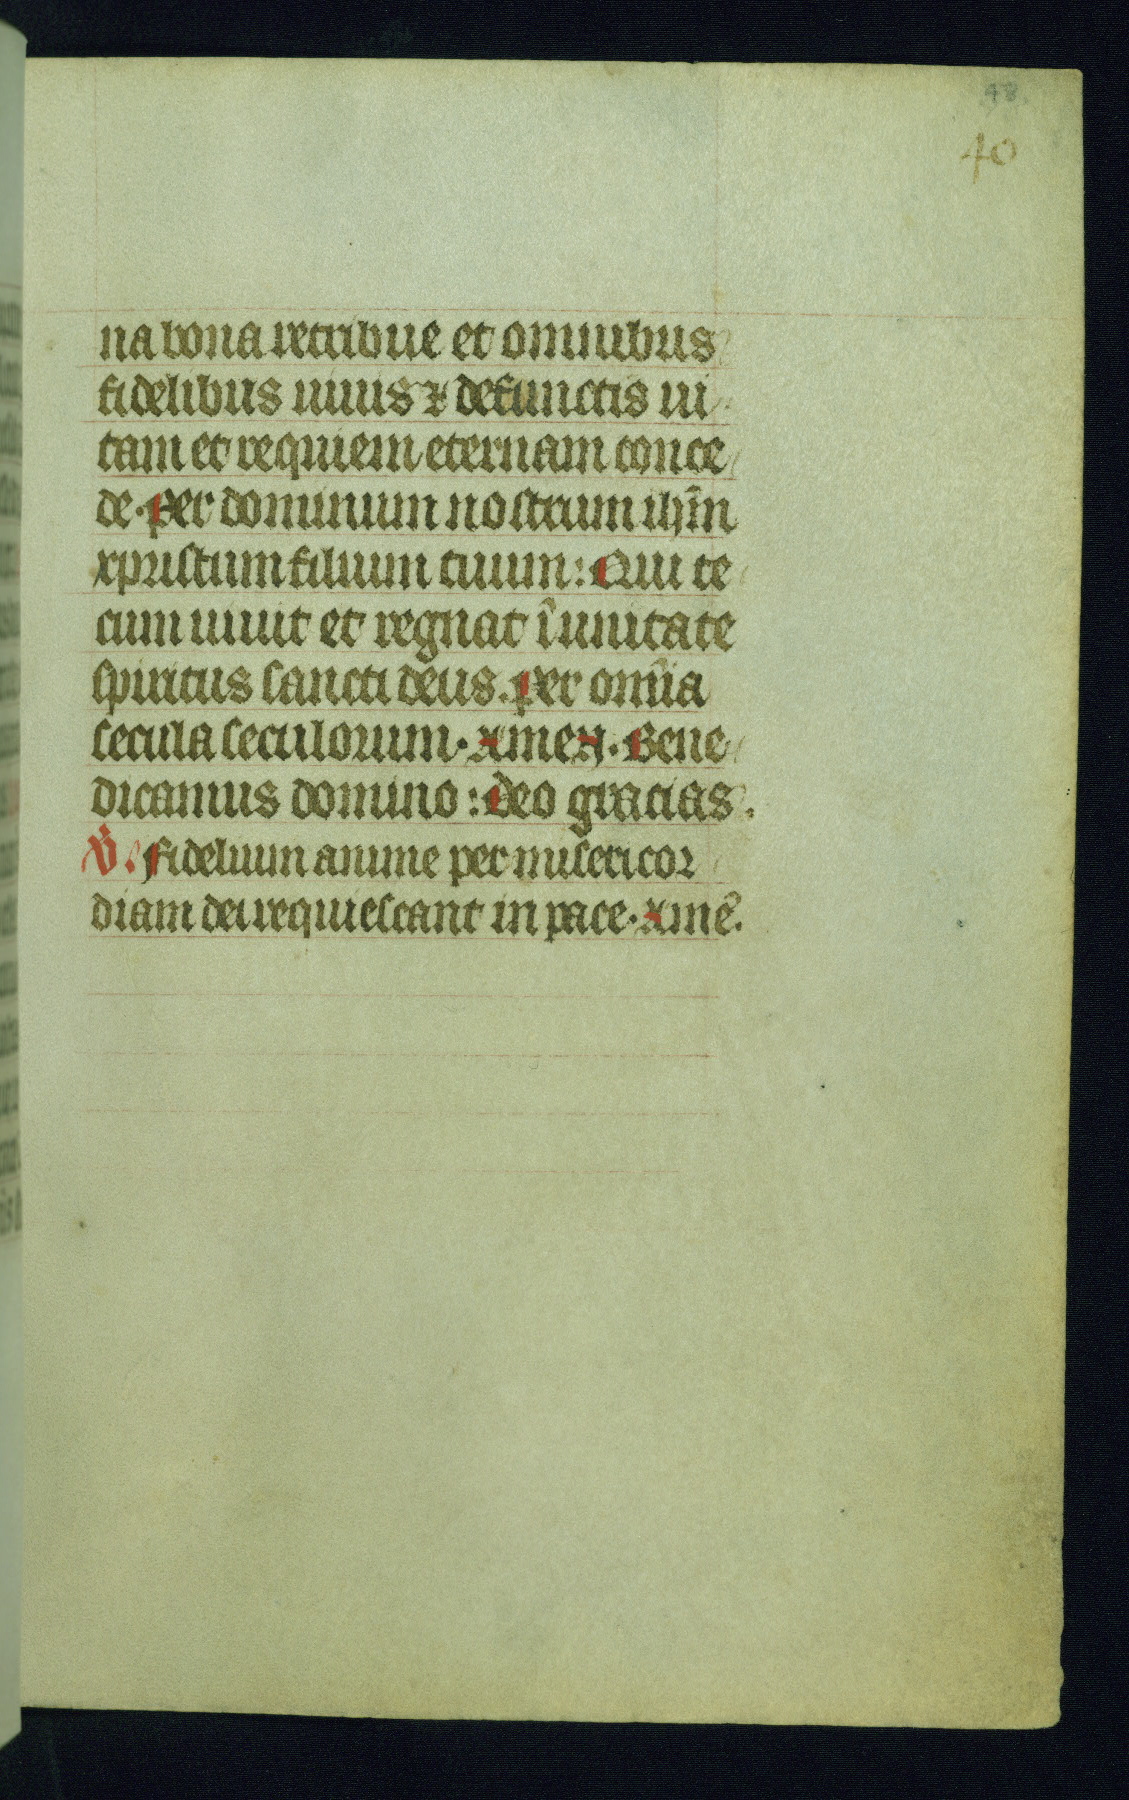 48
40
na bona retribue et omnibus
fidelibus uiuis ⁊ defunctis ui
tam et requiem eternam conce
de. Per dominum nostrum ihm̄
xpristum filium tuum: Qui te
cum uiuit et regnat ī unitate
spiritus sancti deus. Per om̄ia
secula seculorum. Amen. Bene
dicamus domino: Deo gracias.
V̄. Fidelium anime per misericor
diam dei requiescant in pace. Amē.